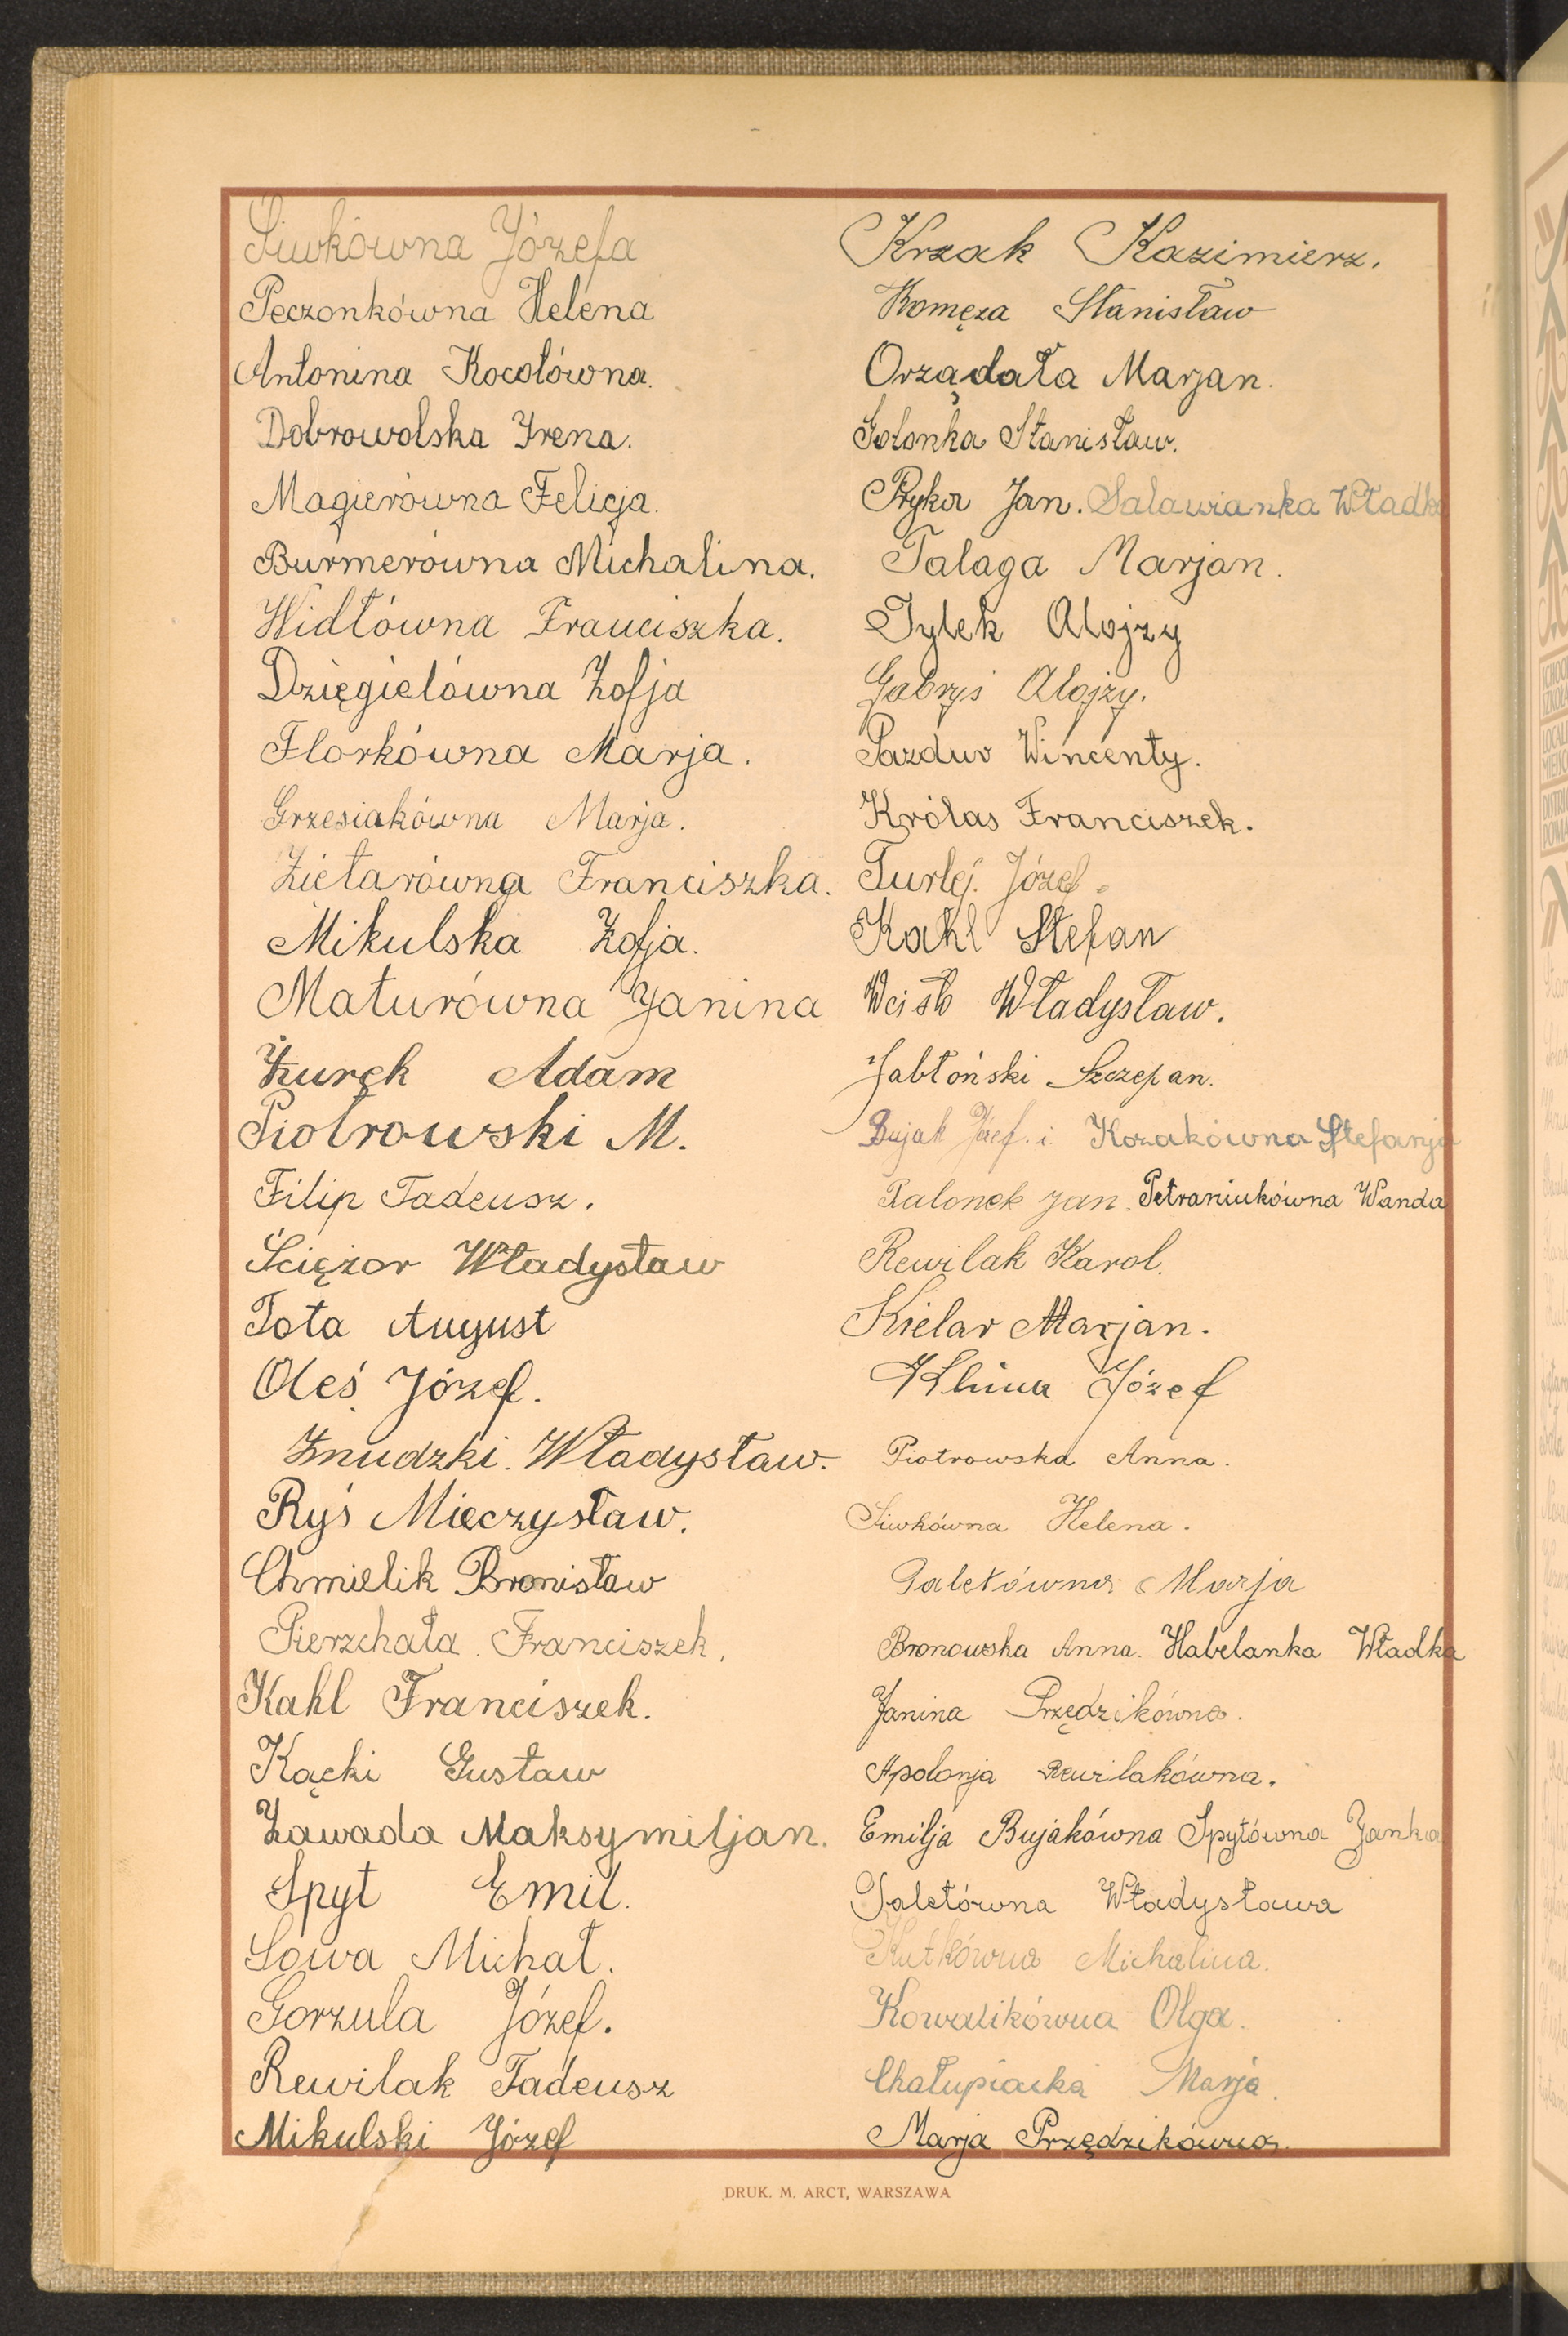 Siwkówna Józefa
Peczonkówna Helena
Antonina Kocołówna.
Dobrowolska Irena.
Magierówna Felicja.
Burmerówna Michalina.
Widłówna Franciszka.
Dzięgielówna Zofja
Florkówna Marja.
Grzesiakówna Marja.
Zietarówna Franciszka.
Mikulska Zofja.
Maturówna Janina
Żurek Adam
Piotrowski M.
Filip Tadeusz.
Ściężor Władysław
Tota August
Oleś Józef.
Żmudzki. Władysław.
Ryś Mieczysław.
Chmielik Bronisław
Pierzchała Franciszek.
Kahl Franciszek.
Kącki Gustaw
Zawada Maksymiljan.
Spyt Emil.
Sowa Michał.
Gorzula Józef.
Rewilak Tadeusz
Mikulski Józef
Krzak Kazimierz.
Komęza Stanisław
Orządała Marjan.
Golonka Stanisław.
Jan. Salawianka Władka
Talaga Marjan.
Tylek Alojzy
Gabryś Alojzy.
Pazdur Wincenty.
Królas Franciszek.
Turlej. Józef.
Kahl Stefan
Władysław.
Jabłoński Szczepan.
Bujak Józef. i. Kozakówna Stefanja
Palonek Jan. Petraniukówna Wanda
Rewilak Karol.
Kielar Marjan.
Klima Józef
Piotrowska Anna.
Siwkówna Helena.
Galetówna Marja
Bronowska Anna. Habelanka Władka
Janina Przędzikówna.
Apolonja Rewilakówna.
Emilja Bujakówna Spytówna Janka
Galetówna Władysława
Kutkówna Michalina.
Kowalikówna Olga.
Chałupiacka Marja.
Marja Przędzikówna.
DRUK. M. ARCT, WARSZAWA